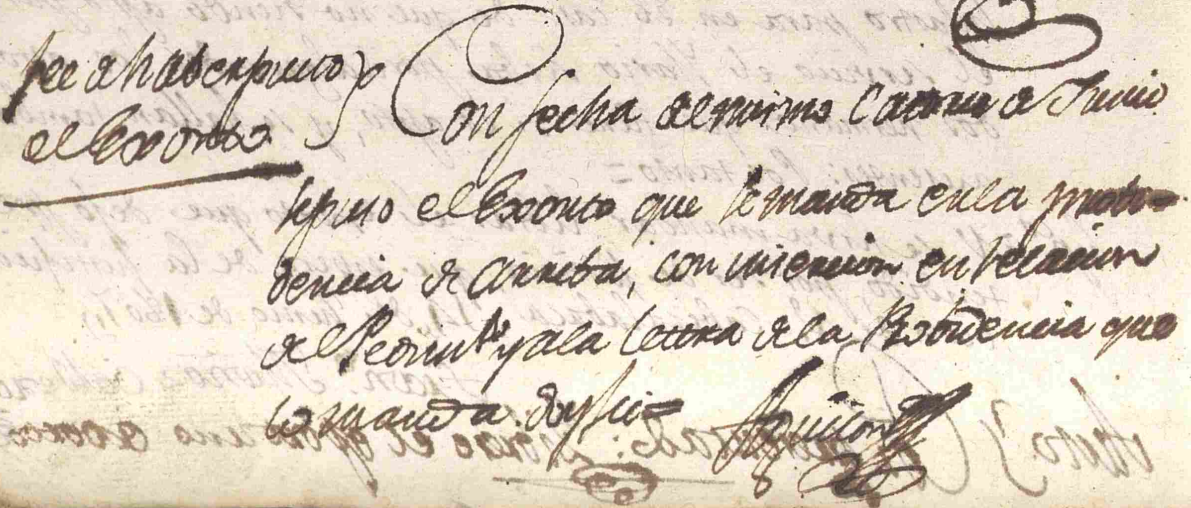 fee de haberse puesto
el Exorto
Con fecha del mismo Catorce de Junio
se puso el Exorto que se manda en la probi=
dencia de arriba, con insercion en relacion
del Pedim.to y a la letra de la Probidencia que
lo manda. doy fee=